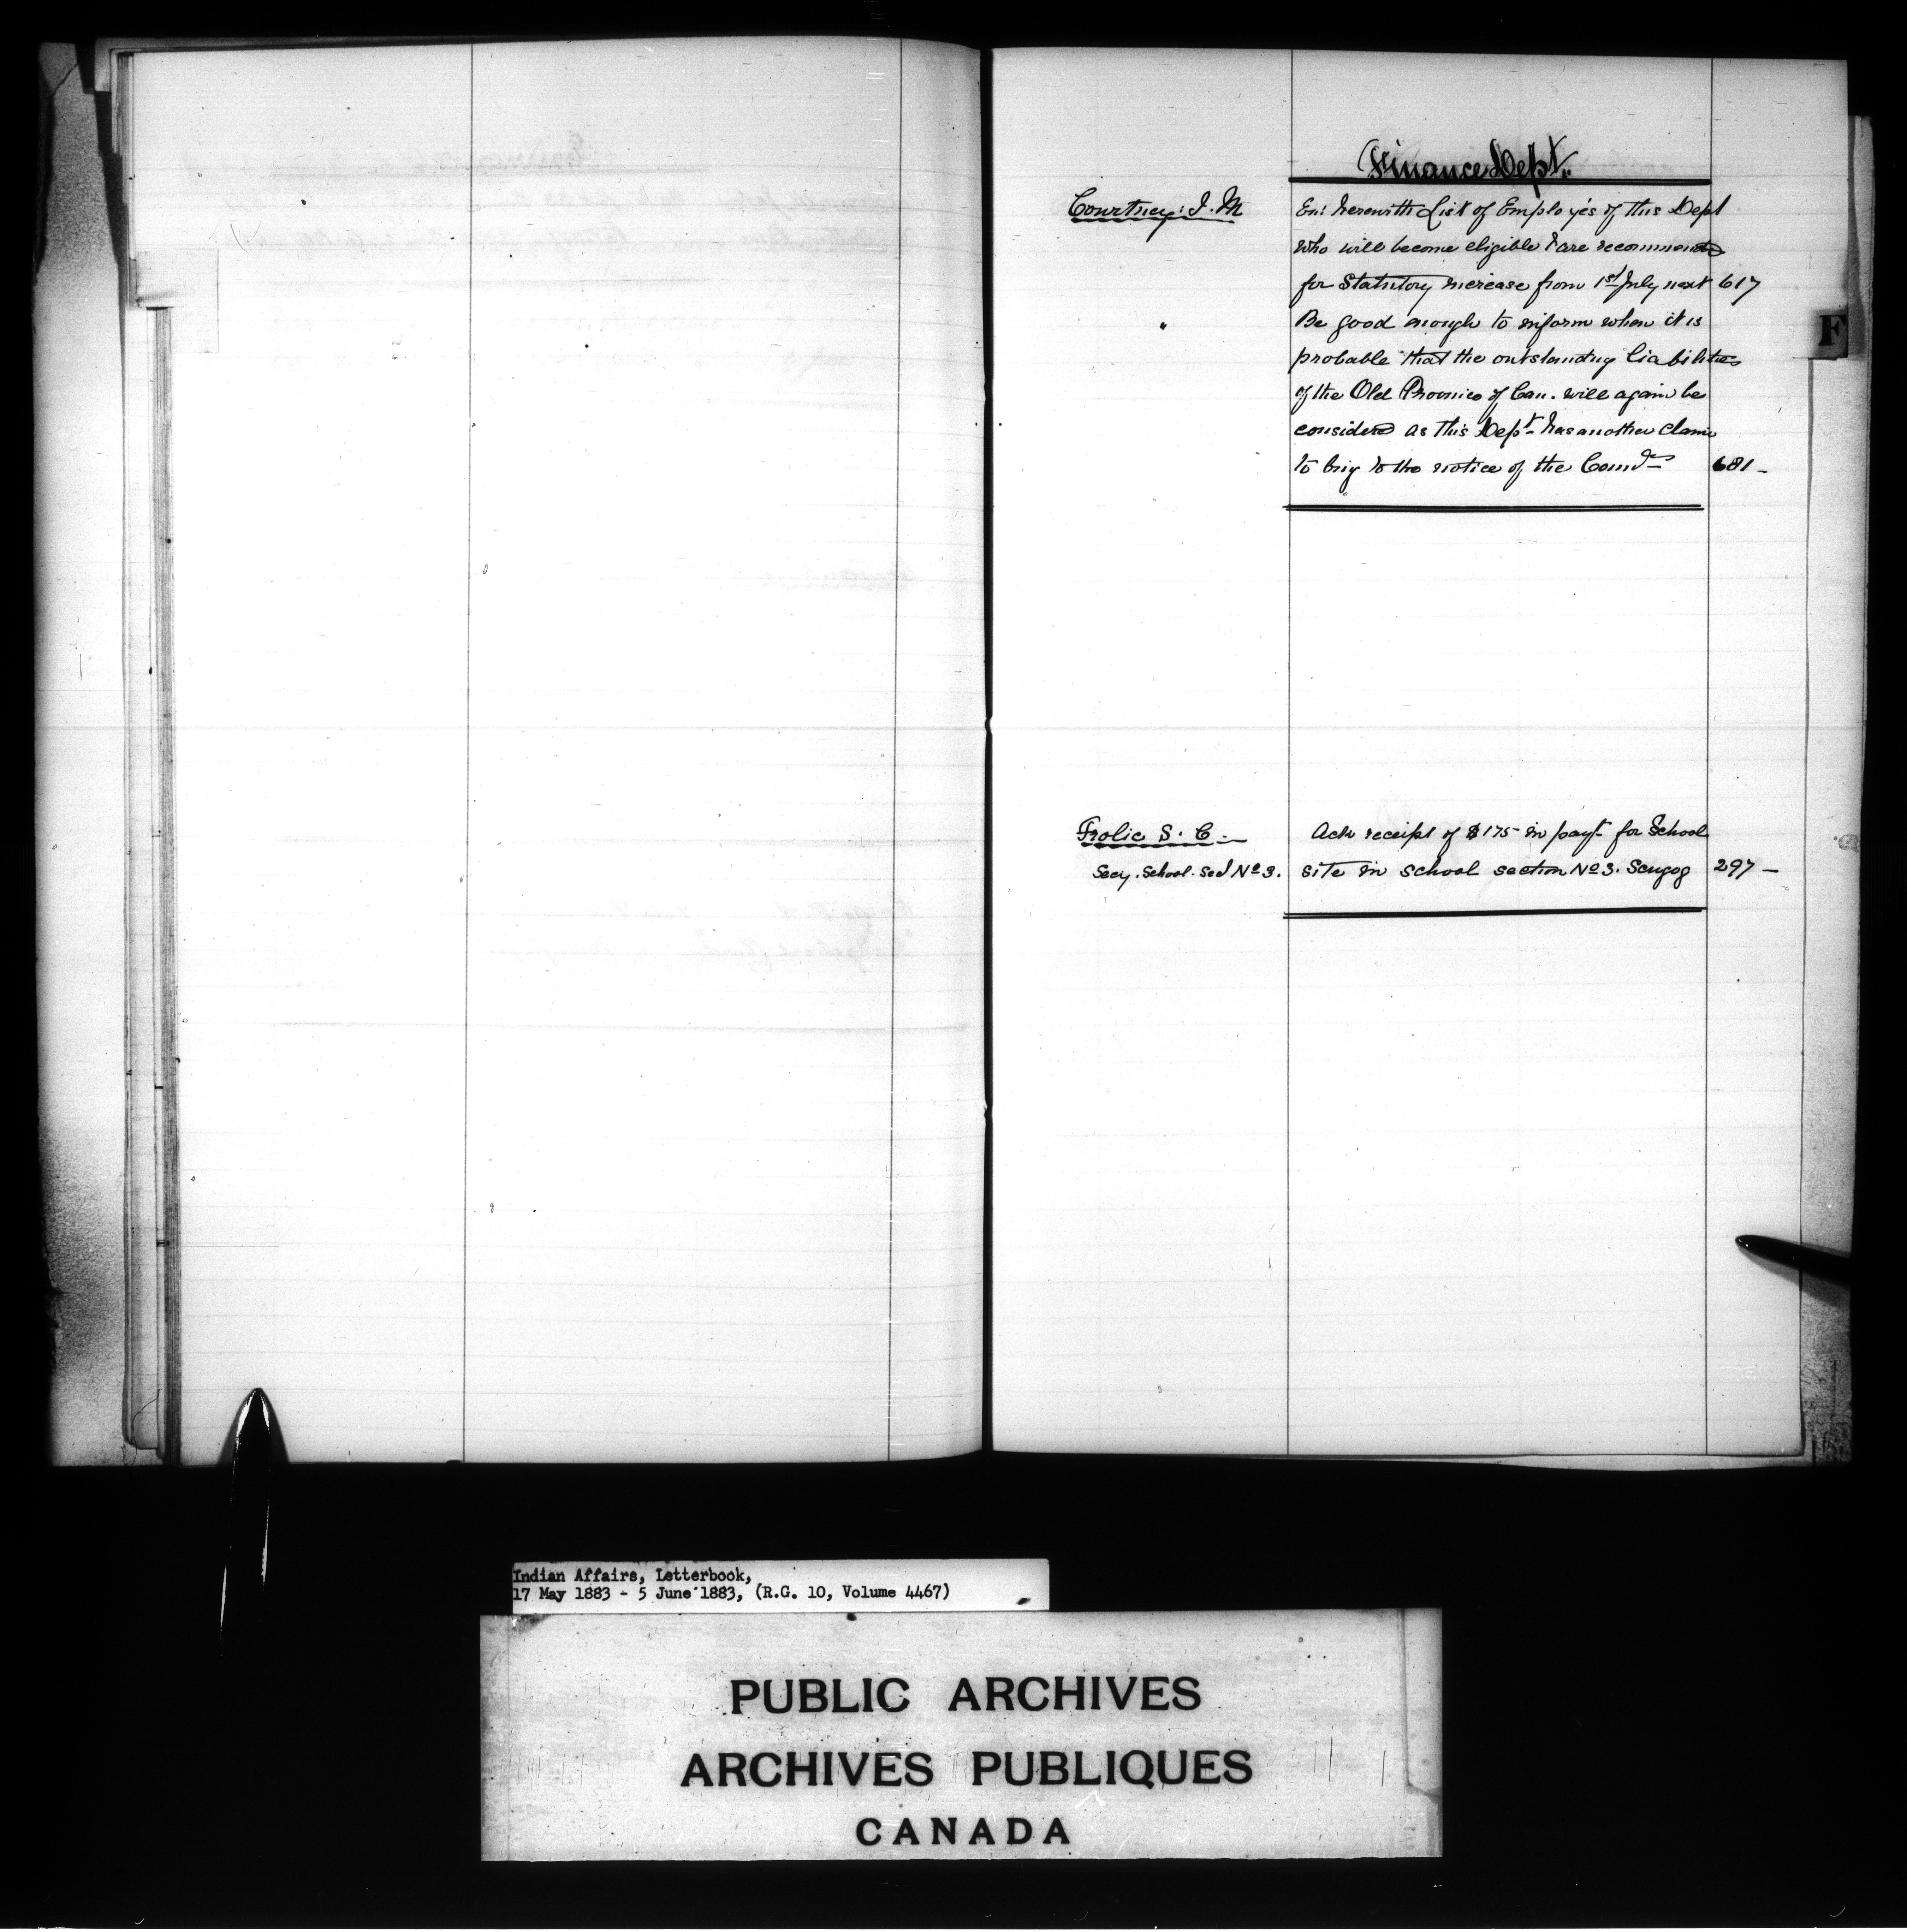 Finance Dept.
Courtney: J. M
En: herewith List of Employés of this Dept
who will become eligible & are recommended
for Statutory increase from 1st July next 617
" Be good enough to inform when it is
probable that the outstanding liabilities
of the Old Province of Can. will again be
considered as this Dept. has another claim
to brig to the notice of the 681 -
F
Frolic S. C. - Ack receipt of $175 in payt for School
Secy. School. Sec No 3. site in school section No 3. Scugog 297 -
Indian Affairs, Letterbook,
17 May 1883 - 5 June 1883, (R.G. 10, Volume 4467)
PUBLIC ARCHIVES
ARCHIVES PUBLIQUES
CANADA